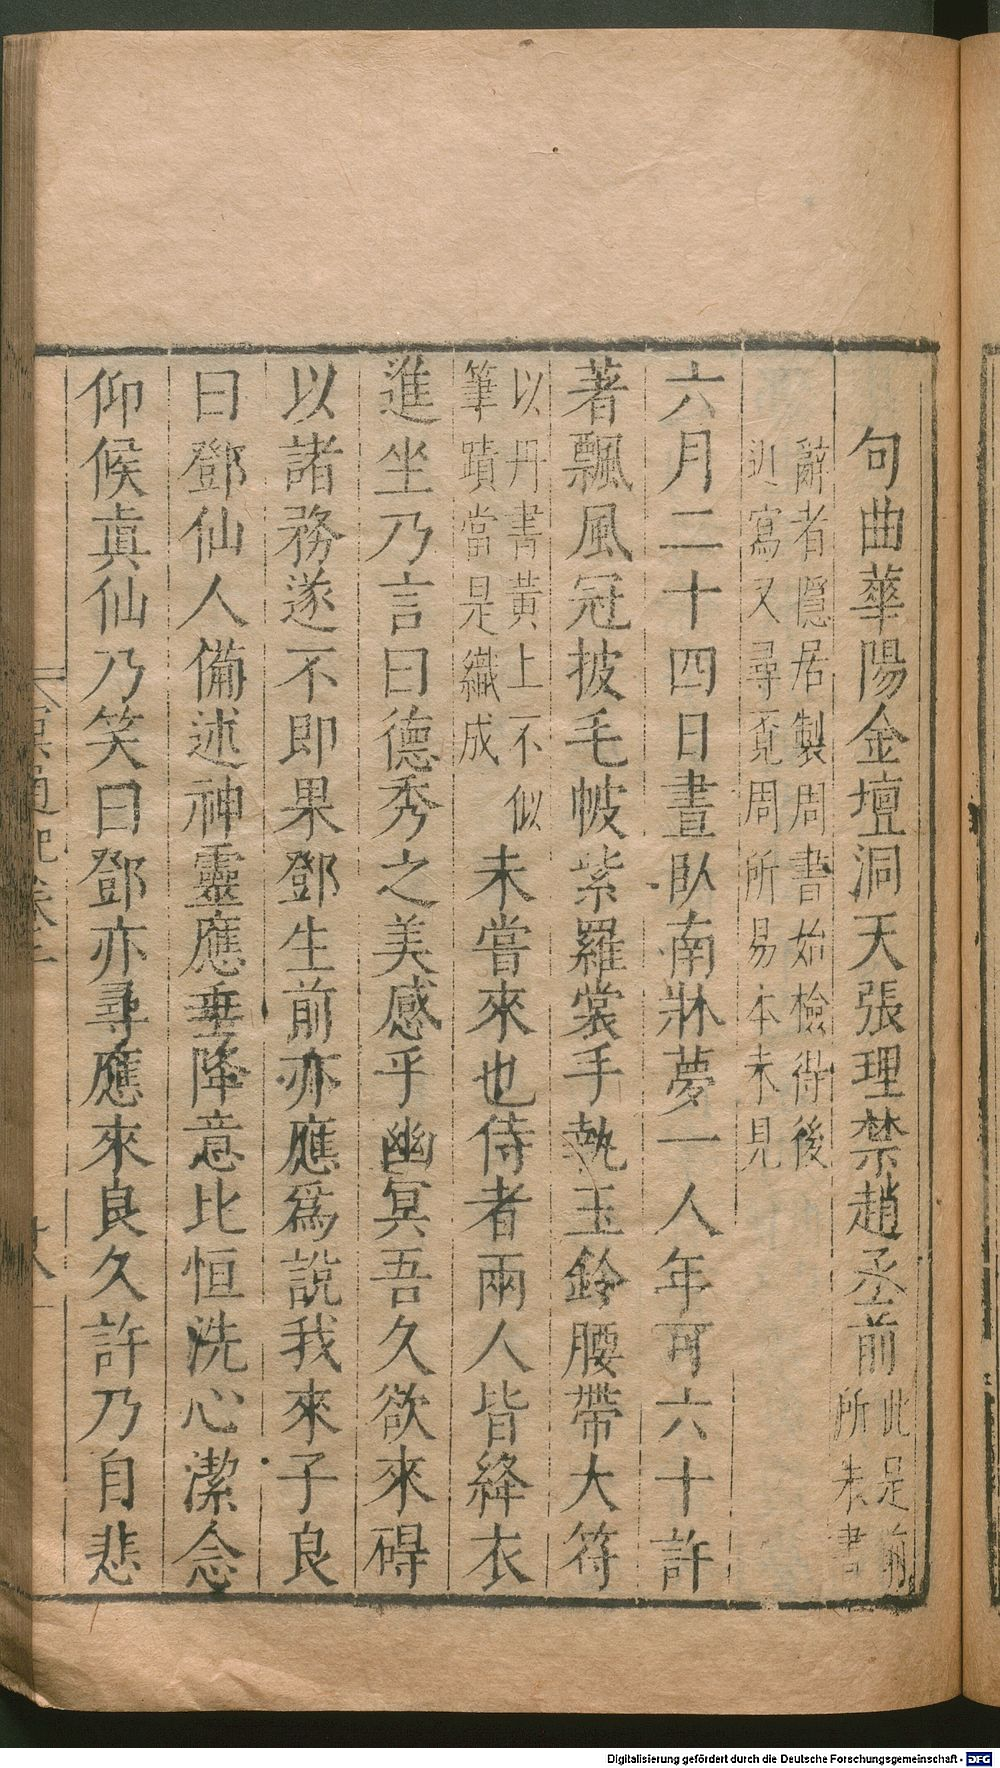 句曲華陽金壇洞天張理禁趙丞前此是前所朱書
辭者隱居製周書始檢得後
近寫又尋覓周所易本未見
六月二十四日晝臥南牀夢一人年可六十許
著飄風冠披毛帔紫羅裳手執玉鈴腰帶大符
以丹書黃上不似筆蹟當是織成未嘗來也侍者兩人皆絳衣
進坐乃言曰德秀之美感乎幽冥吾久欲來碍
以諸務遂不即果鄧生前亦應爲說我來子良
曰鄧仙人備述神靈應垂降意比恒洗心潔念
仰候眞仙乃笑曰鄧亦尋應來良久許乃自悲
冥通記卷二
Digitalisierung gefördert durch die Deutsche Forschungsgemeinschaft - DFG